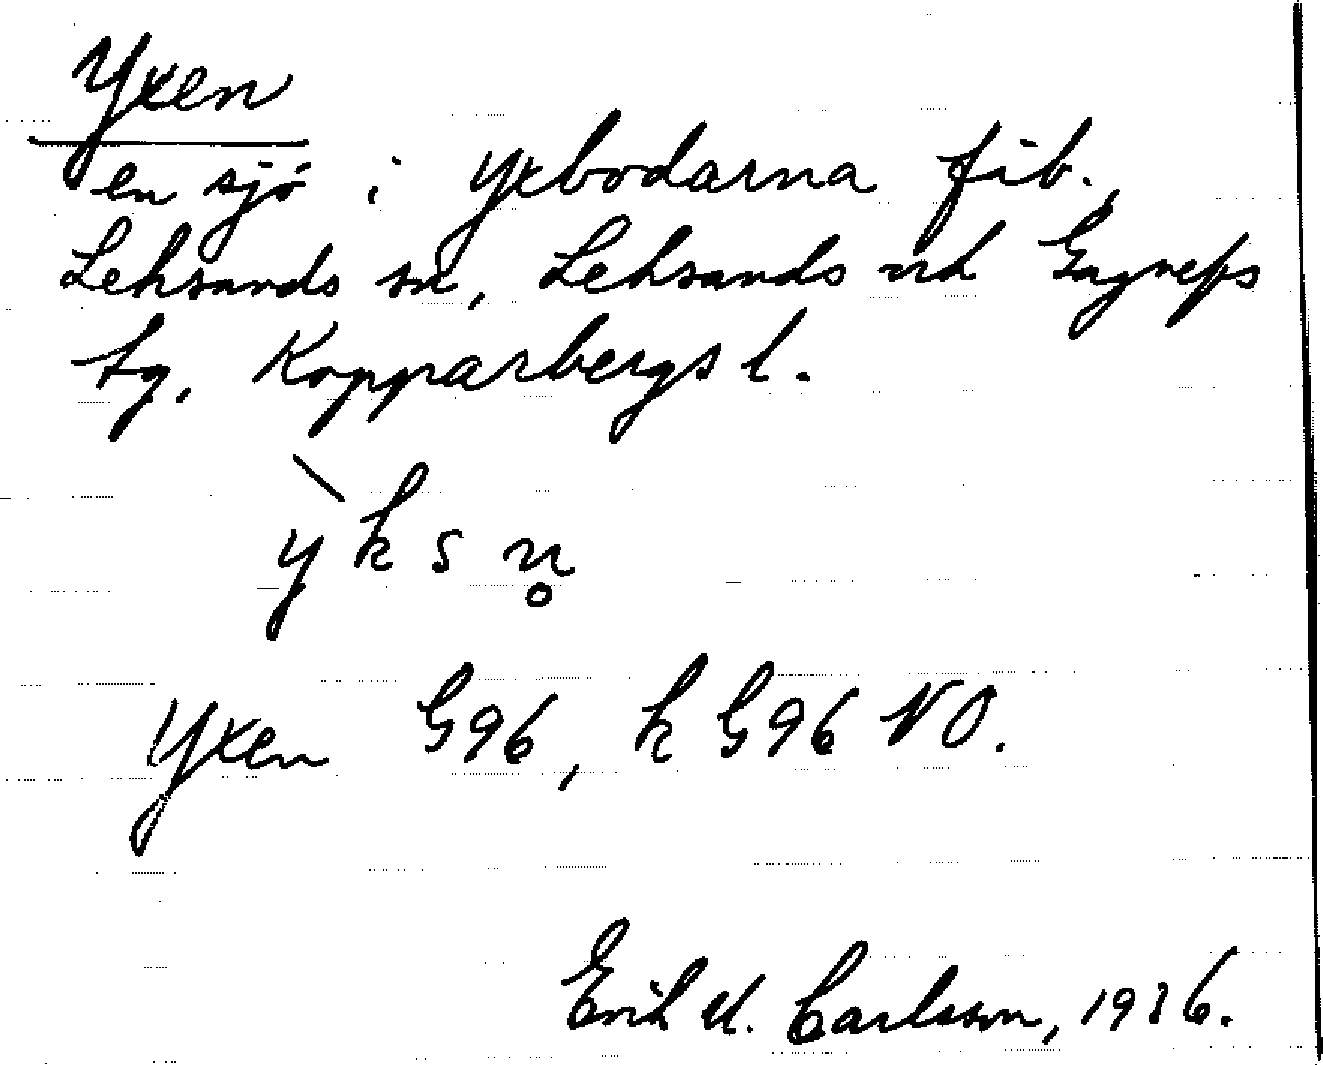 Yxen
en sjö i Yxbodarna fäb.,
Leksands sn, Leksands och Gagnefs
tg, Kopparbergs l.
`yksn̥
Yxen G96, k G96 NO.
Erik U. Carlsson, 1936.